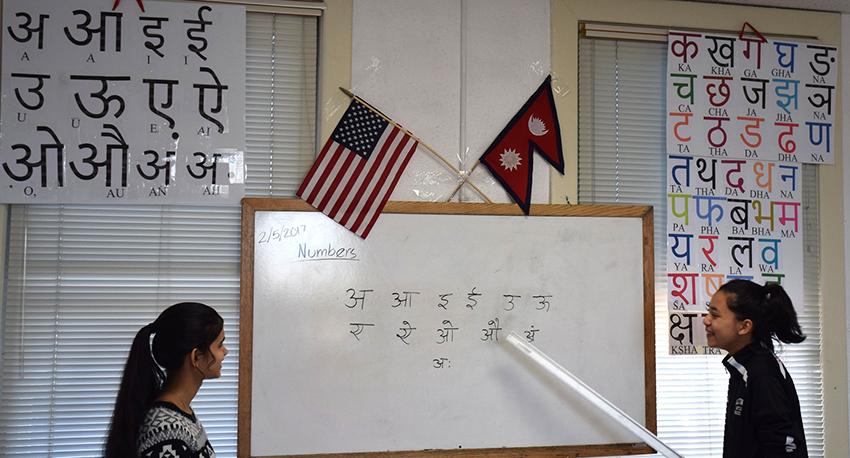 अ आ इ ई
A A I I
उ ऊ ए ऐ
U U E AI
ओ औ अं अः
O, AU AN AH
2/5/2017
Numbers
अ आ इ ई उ ऊ
ए ऐ ओ औ अं
अः
क ख ग घ ङ
KA KHA GA GHA NA
च छ ज झ ञ
CA CHA JA JHA NA
ट ठ ड ढ ण
TA THA DA DHA NA
त थ द ध न
TA THA DA DHA NA
प फ ब भ म
PA PHA BA BHA MA
य र ल व
YA RA LA WA
श ष
SA
क्ष
KSHA TRA